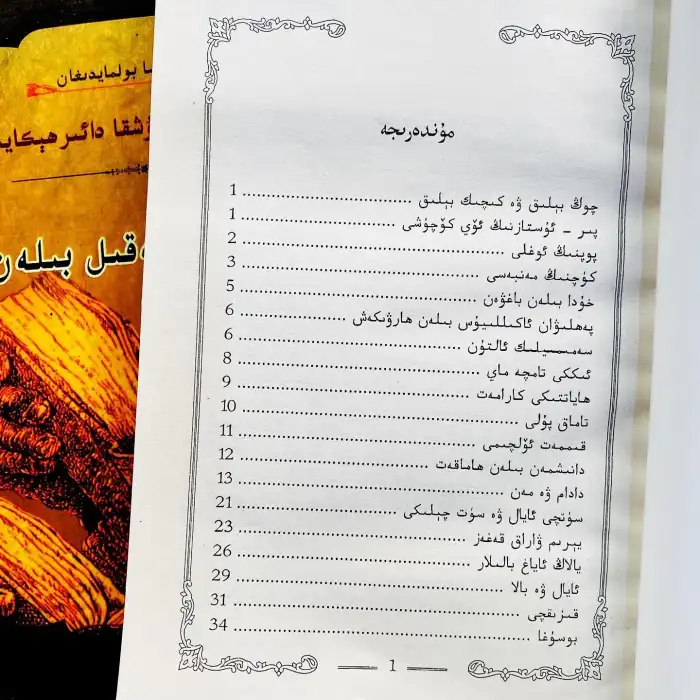 مۇندەرىجە
چوڭ بېلىق ۋە كىچىك بېلىق ........ 1
پىر - ئۇستازنىڭ ئۆي كۆچۈشى ........ 1
پوپنىڭ ئوغلى ........ 2
كۈچنىڭ مەنبەسى ........ 3
خۇدا بىلەن باغۋەن ........ 5
پەھلىۋان ئاكىللىيۇس بىلەن ھارۋىكەش ........ 6
سەمىمىيلىك ئالتۇن ........ 6
ئىككى تامچە ماي ........ 8
ھاياتتىكى كارامەت ........ 9
تاماق پۇلى ........ 10
قىممەت ئۆلچىمى ........ 11
دانىشمەن بىلەن ھاماقەت ........ 12
دادام ۋە مەن ........ 13
سۈتچى ئايال ۋە سۈت چېلىكى ........ 21
يېرىم ۋاراق قەغەز ........ 23
يالاڭ ئاياغ بالىلار ........ 26
ئايال ۋە بالا ........ 29
قىزىقچى ........ 31
بوسۇغا ........ 34
1
ا بولمايدىغان
ۇشقا دائىر ھېكايە
ەقىل بىلەن